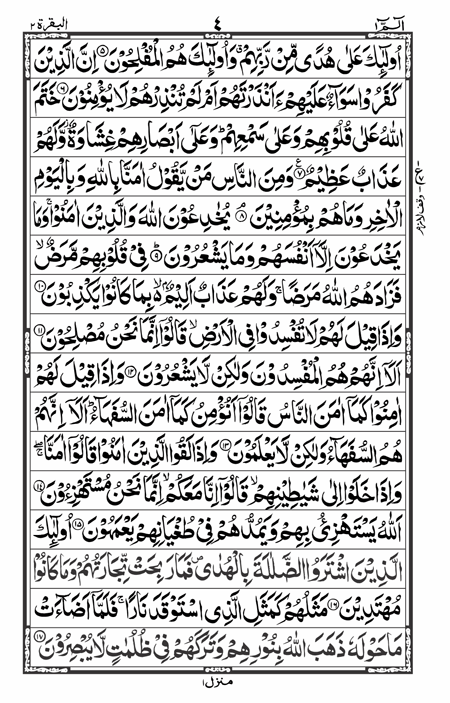 الٓمّٓ ١ ٤ البقرة ٢
اُولٰٓئِكَ عَلٰى هُدًى مِّنْ رَّبِّهِمْ ۗ وَاُولٰٓئِكَ هُمُ الْمُفْلِحُوْنَ ۝٥ اِنَّ الَّذِيْنَ
كَفَرُوْا سَوَآءٌ عَلَيْهِمْ ءَاَنْذَرْتَهُمْ اَمْ لَمْ تُنْذِرْهُمْ لَا يُؤْمِنُوْنَ ۝٦ خَتَمَ
اللّٰهُ عَلٰى قُلُوْبِهِمْ وَعَلٰى سَمْعِهِمْ ؕ وَعَلٰٓى اَبْصَارِهِمْ غِشَاوَةٌ ؗ وَّلَهُمْ
عَذَابٌ عَظِيْمٌ ۝٧ وَمِنَ النَّاسِ مَنْ يَّقُوْلُ اٰمَنَّا بِاللّٰهِ وَبِالْيَوْمِ
الْاٰخِرِ وَمَا هُمْ بِمُؤْمِنِيْنَ ۝٨ يُخٰدِعُوْنَ اللّٰهَ وَالَّذِيْنَ اٰمَنُوْا ۚ وَمَا
يَخْدَعُوْنَ اِلَّآ اَنْفُسَهُمْ وَمَا يَشْعُرُوْنَ ۝٩ فِيْ قُلُوْبِهِمْ مَّرَضٌ ۙ
فَزَادَهُمُ اللّٰهُ مَرَضًا ۚ وَلَهُمْ عَذَابٌ اَلِيْمٌۢ ۙ بِمَا كَانُوْا يَكْذِبُوْنَ ۝١٠
وَاِذَا قِيْلَ لَهُمْ لَا تُفْسِدُوْا فِي الْاَرْضِ ۙ قَالُوْٓا اِنَّمَا نَحْنُ مُصْلِحُوْنَ ۝١١
اَلَآ اِنَّهُمْ هُمُ الْمُفْسِدُوْنَ وَلٰكِنْ لَّا يَشْعُرُوْنَ ۝١٢ وَاِذَا قِيْلَ لَهُمْ
اٰمِنُوْا كَمَآ اٰمَنَ النَّاسُ قَالُوْٓا اَنُؤْمِنُ كَمَآ اٰمَنَ السُّفَهَآءُ ؕ اَلَآ اِنَّهُمْ
هُمُ السُّفَهَآءُ وَلٰكِنْ لَّا يَعْلَمُوْنَ ۝١٣ وَاِذَا لَقُوا الَّذِيْنَ اٰمَنُوْا قَالُوْٓا اٰمَنَّا ۖۚ
وَاِذَا خَلَوْا اِلٰى شَيٰطِيْنِهِمْ ۙ قَالُوْٓا اِنَّا مَعَكُمْ ۙ اِنَّمَا نَحْنُ مُسْتَهْزِءُوْنَ ۝١٤
اَللّٰهُ يَسْتَهْزِئُ بِهِمْ وَيَمُدُّهُمْ فِيْ طُغْيَانِهِمْ يَعْمَهُوْنَ ۝١٥ اُولٰٓئِكَ
الَّذِيْنَ اشْتَرَوُا الضَّلٰلَةَ بِالْهُدٰى ۪ فَمَا رَبِحَتْ تِّجَارَتُهُمْ وَمَا كَانُوْا
مُهْتَدِيْنَ ۝١٦ مَثَلُهُمْ كَمَثَلِ الَّذِي اسْتَوْقَدَ نَارًا ۚ فَلَمَّآ اَضَآءَتْ
مَا حَوْلَهٗ ذَهَبَ اللّٰهُ بِنُوْرِهِمْ وَتَرَكَهُمْ فِيْ ظُلُمٰتٍ لَّا يُبْصِرُوْنَ ۝١٧
منزل ١